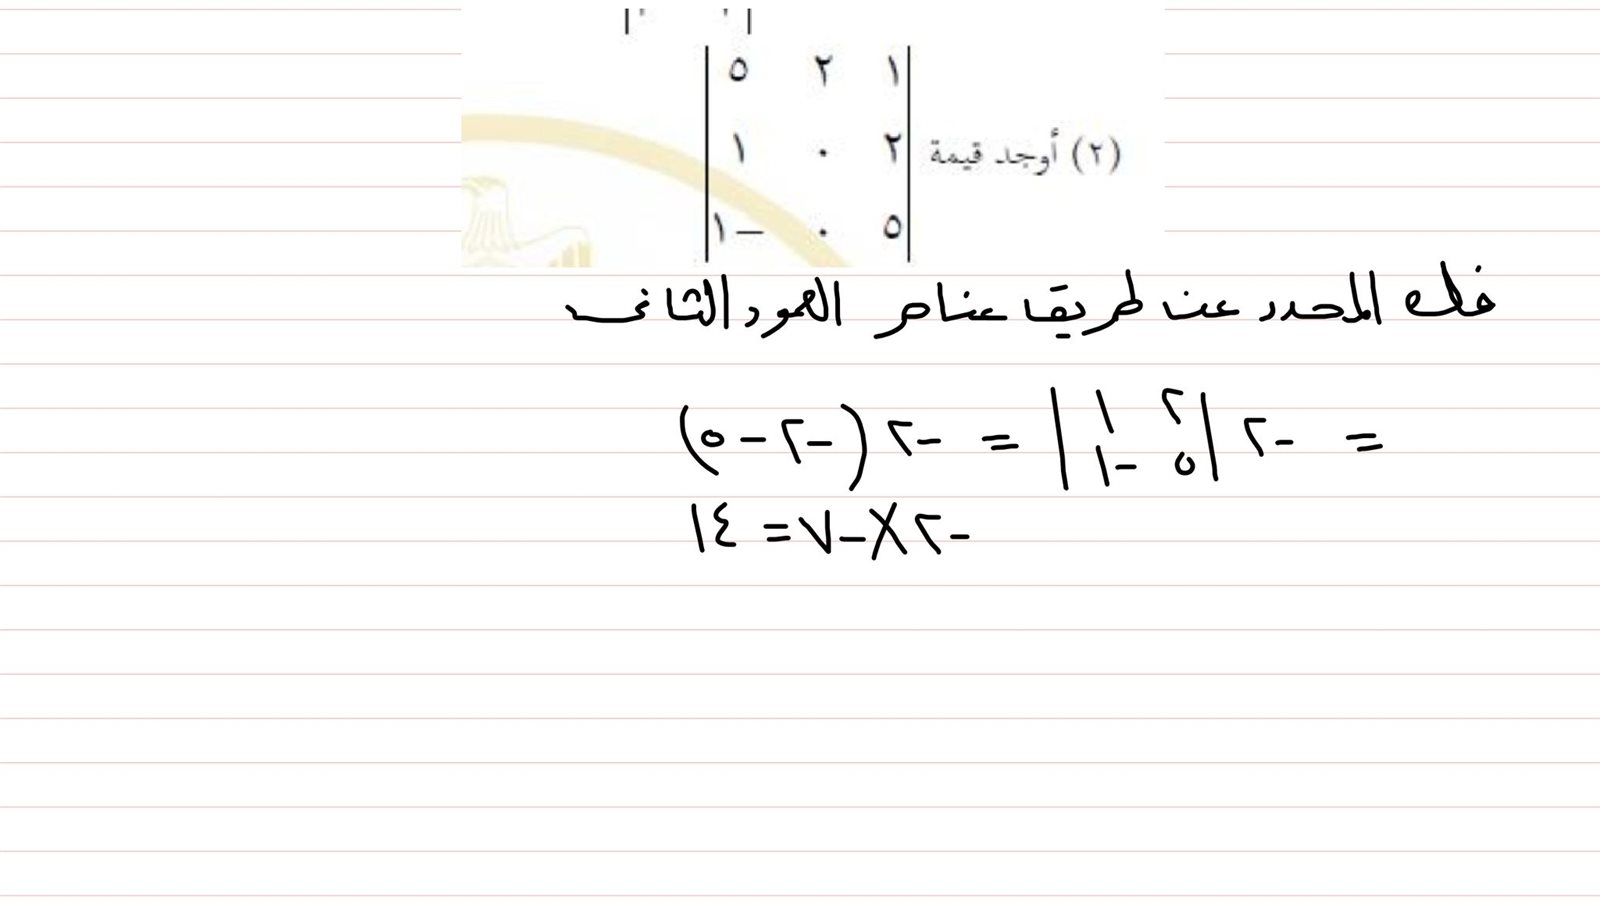 ١ ٢ ٥
(٢) أوجد قيمة ٢ ٠ ١
٥ ٠ −١
فك المحدد عن طريق عناصر العمود الثانى
= -٢ |٢ ١ ٥ -١| = -٢ (-٢ - ٥)
-٢ × -٧ = ١٤